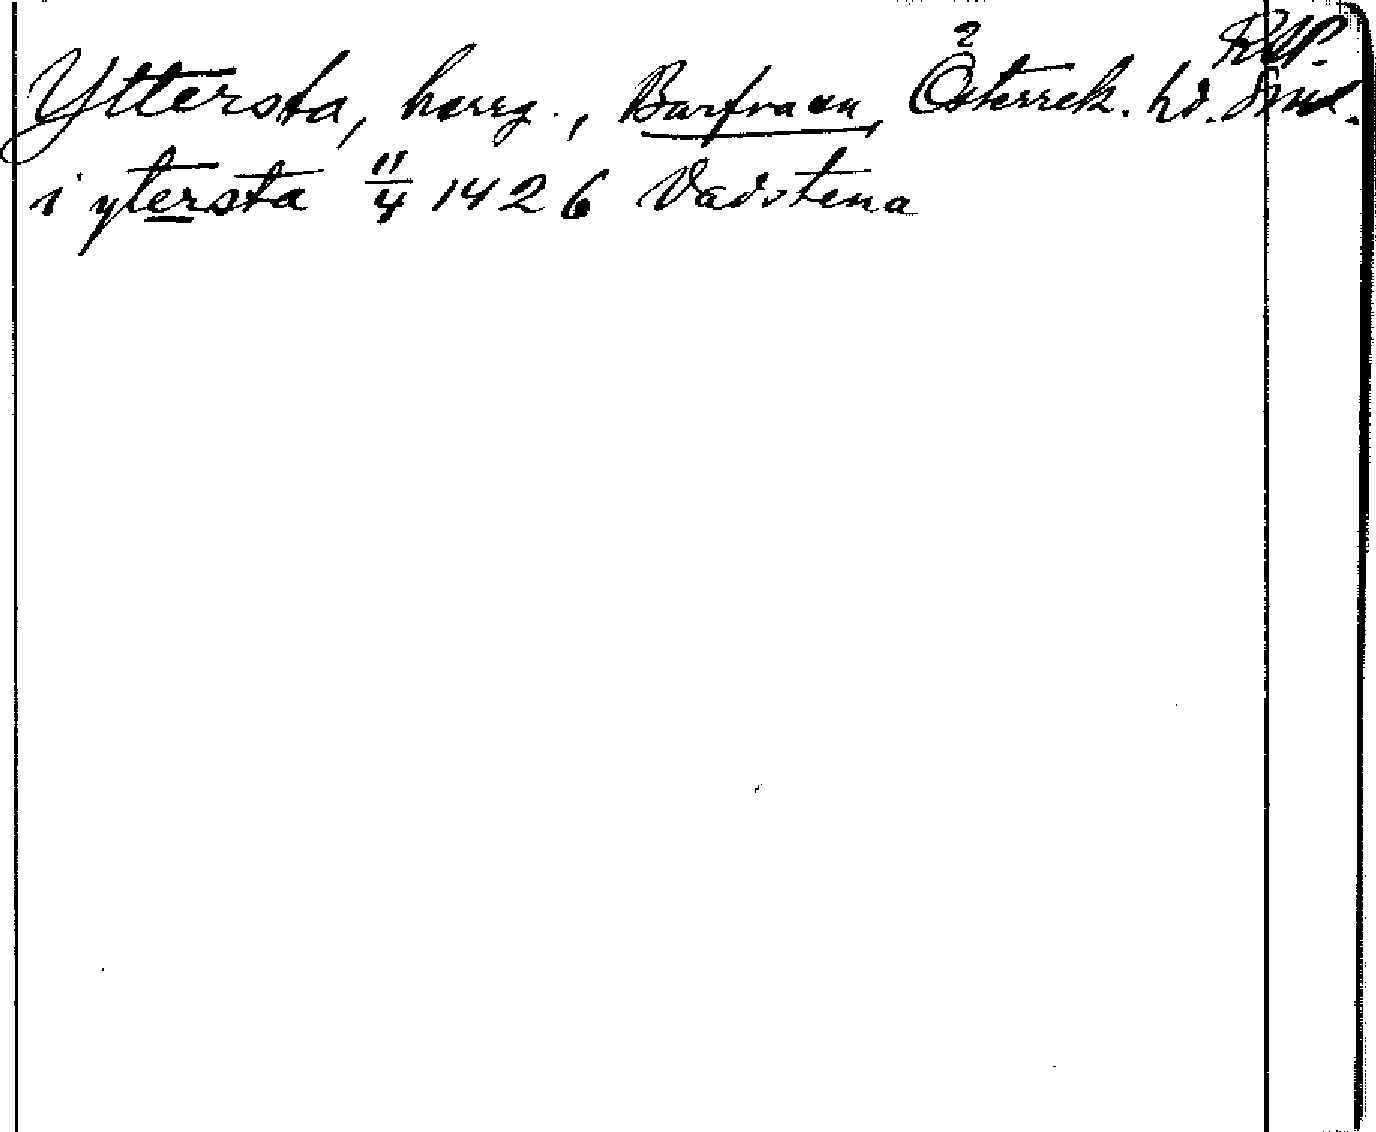 Yttersta, herrg., Barfva sn, Österrek. hd. Sml.
i ytersta 11/4 1426 Vadstena